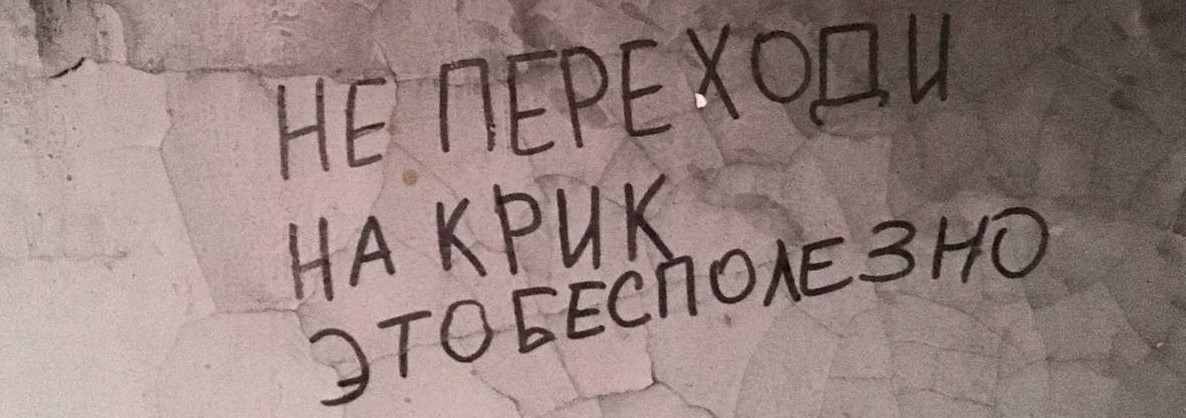 НЕ ПЕРЕХОДИ
НА КРИК
ЭТО БЕСПОЛЕЗНО